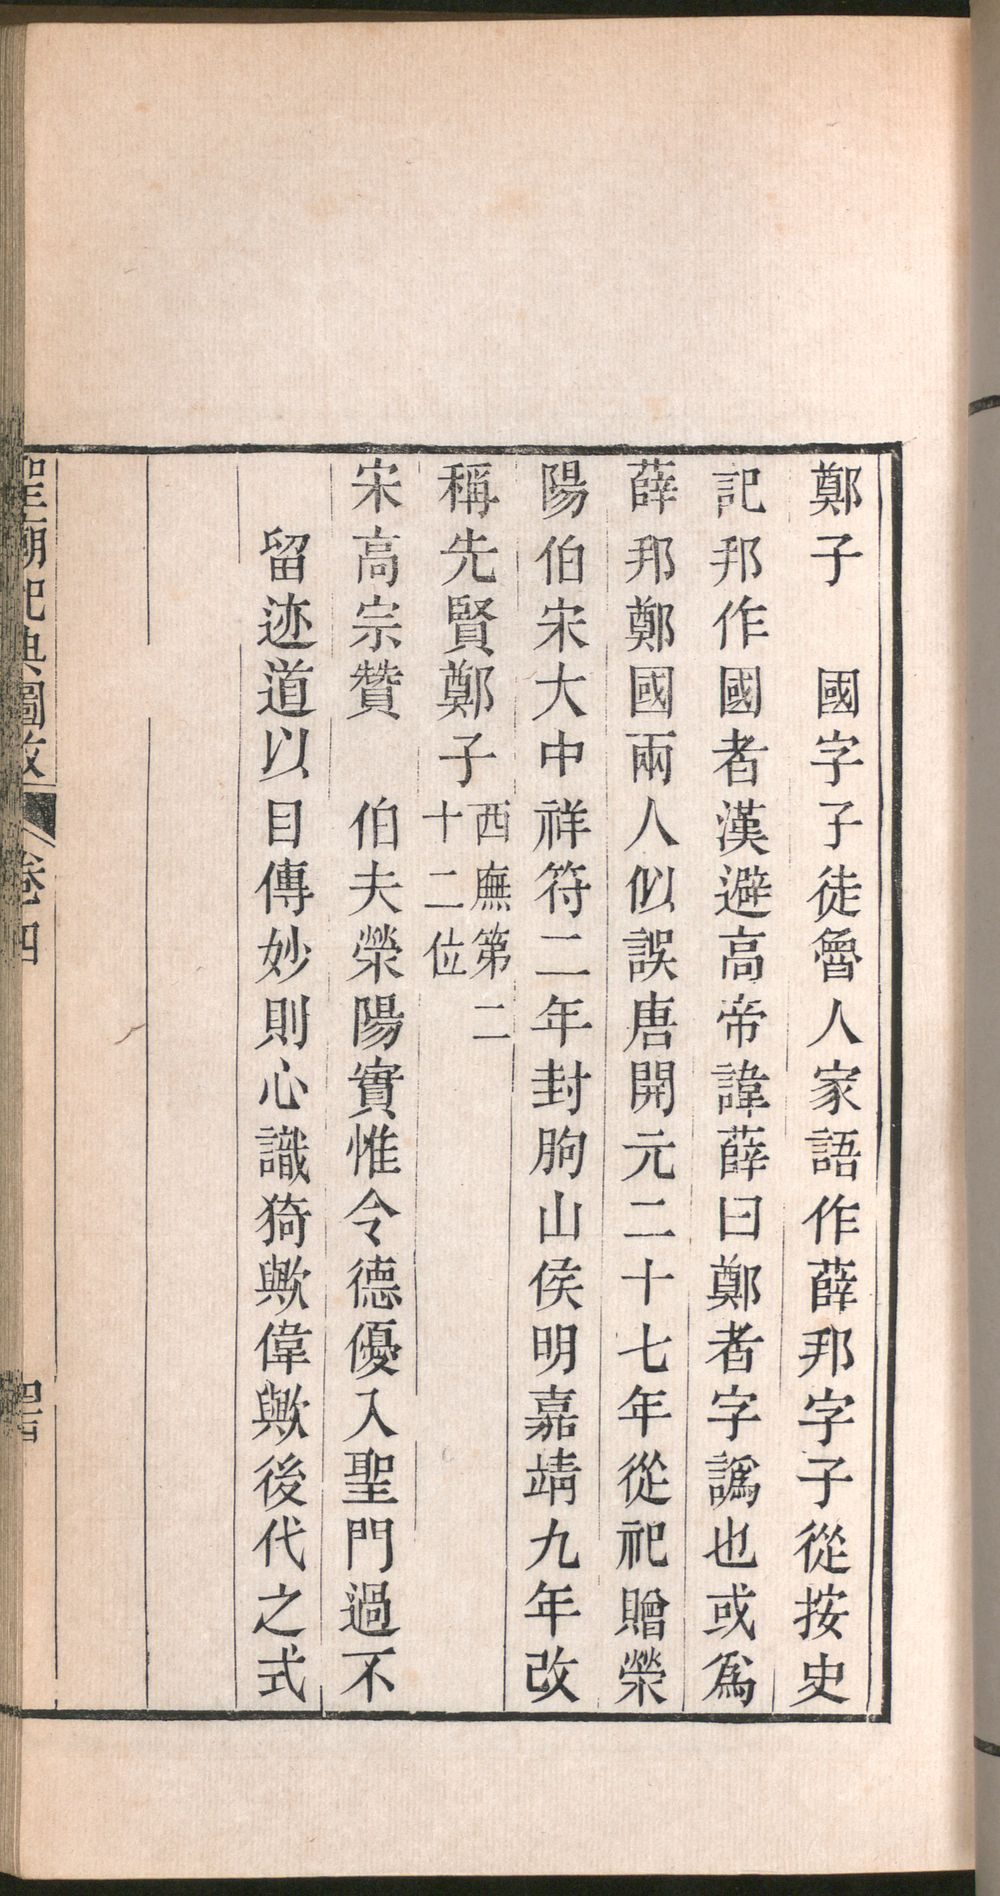 鄭子　國字子徒魯人家語作薛邦字子從按史
記邦作國者漢避高帝諱薛曰鄭者字譌也或爲
薛邦鄭國兩人似誤唐開元二十七年從祀贈榮
陽伯宋大中祥符二年封朐山侯明嘉靖九年改
稱先賢鄭子西廡第二
十二位
宋高宗贊　伯夫榮陽實惟令德優入聖門過不
留迹道以目傳妙則心識猗歟偉歟後代之式
聖廟祀典圖攷
卷四